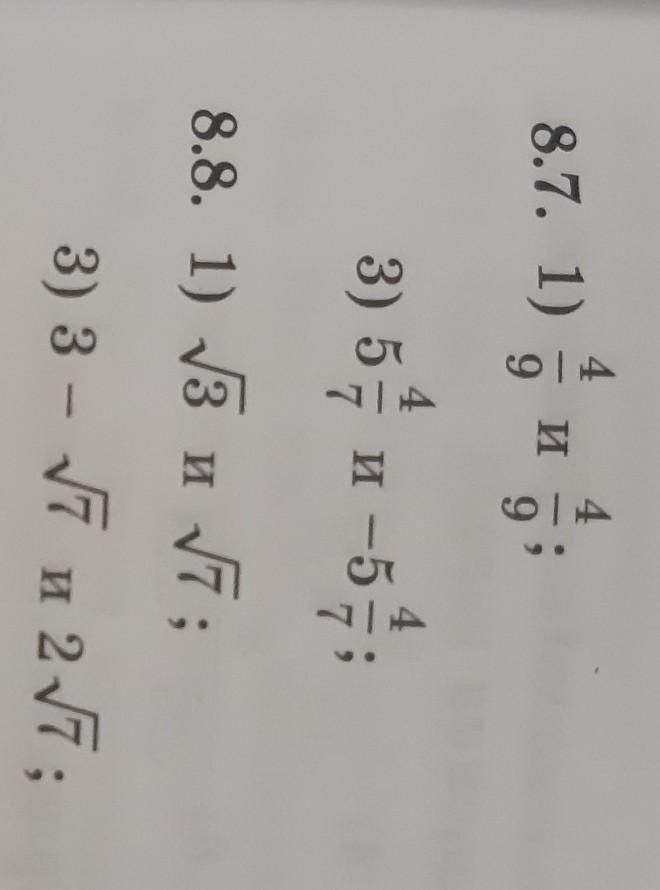 8.7. 1) 4/9 и 4/9;
3) 5 4/7 и −5 4/7;
8.8. 1) √3 и √7;
3) 3 − √7 и 2√7;